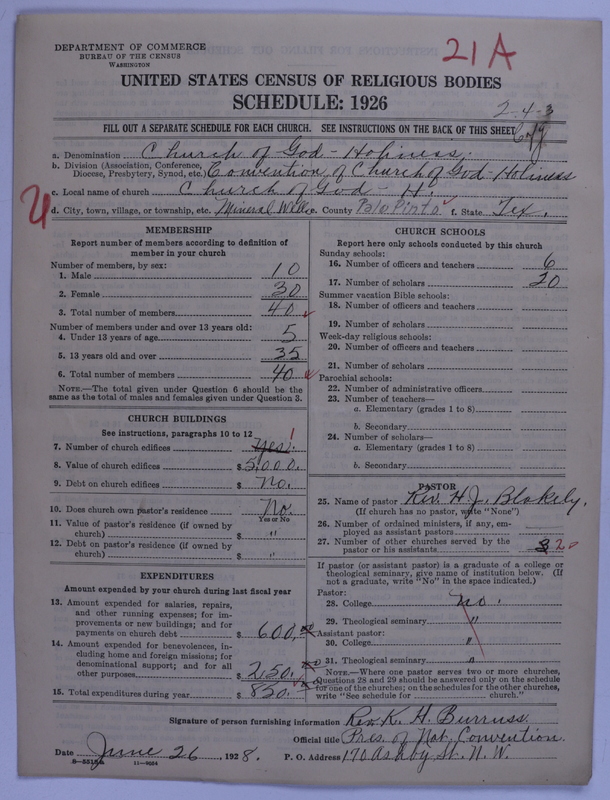 DEPARTMENT OF COMMERCE
BUREAU OF THE CENSUS
WASHINGTON
21A
UNITED STATES CENSUS OF RELIGIOUS BODIES
SCHEDULE: 1926
2-4-3
FILL OUT A SEPARATE SCHEDULE FOR EACH CHURCH. SEE INSTRUCTIONS ON THE BACK OF THIS SHEET
a. Denomination Church of God - Holiness
b. Division (Association, Conference, Diocese, Presbytery, Synod, etc.) Convention of Church of God Holiness
c. Local name of church Church of God - H.
d. City, town, village, or township, etc. Mineral Wells e. County Palo Pinto f. State Tex.
MEMBERSHIP
Report number of members according to definition of
member in your church
Number of members, by sex:
1. Male 10
2. Female 30
3. Total number of members 40
Number of members under and over 13 years old:
4. Under 13 years of age 5
5. 13 years old and over 35
6. Total number of members 40
NOTE.—The total given under Question 6 should be the
same as the total of males and females given under Question 3.
CHURCH BUILDINGS
See instructions, paragraphs 10 to 12
7. Number of church edifices Yes. 1
8. Value of church edifices $ 5,000.
9. Debt on church edifices $ No.
10. Does church own pastor's residence? No.
Yes or No
11. Value of pastor's residence (if owned by
church) $ "
12. Debt on pastor's residence (if owned by
church) $ "
EXPENDITURES
Amount expended by your church during last fiscal year
13. Amount expended for salaries, repairs,
and other running expenses; for im-
provements or new buildings; and for
payments on church debt $ 600.
14. Amount expended for benevolences, in-
cluding home and foreign missions; for
denominational support; and for all
other purposes $ 250.
15. Total expenditures during year $ 850.
CHURCH SCHOOLS
Report here only schools conducted by this church
Sunday schools:
16. Number of officers and teachers 6
17. Number of scholars 20
Summer vacation Bible schools:
18. Number of officers and teachers
19. Number of scholars
Week-day religious schools:
20. Number of officers and teachers
21. Number of scholars
Parochial schools:
22. Number of administrative officers
23. Number of teachers—
a. Elementary (grades 1 to 8)
b. Secondary
24. Number of scholars—
a. Elementary (grades 1 to 8)
b. Secondary
PASTOR
25. Name of pastor Rev. H. J. Blakely.
(If church has no pastor, write "None")
26. Number of ordained ministers, if any, em-
ployed as assistant pastors
27. Number of other churches served by the
pastor or his assistants 3 2
If pastor (or assistant pastor) is a graduate of a college or
theological seminary, give name of institution below. (If
not a graduate, write "No" in the space indicated.)
Pastor:
28. College No.
29. Theological seminary "
Assistant pastor:
30. College "
31. Theological seminary "
NOTE.—Where one pastor serves two or more churches,
Questions 28 and 29 should be answered only on the schedule
for one of the churches; on the schedules for the other churches,
write "See schedule for church."
Signature of person furnishing information Rev. K. H. Burruss.
Official title Pres. of Nat. Convention.
Date June 26, 1928. P. O. Address 170 Ashby St. N. W.
8-5515a 11-9024